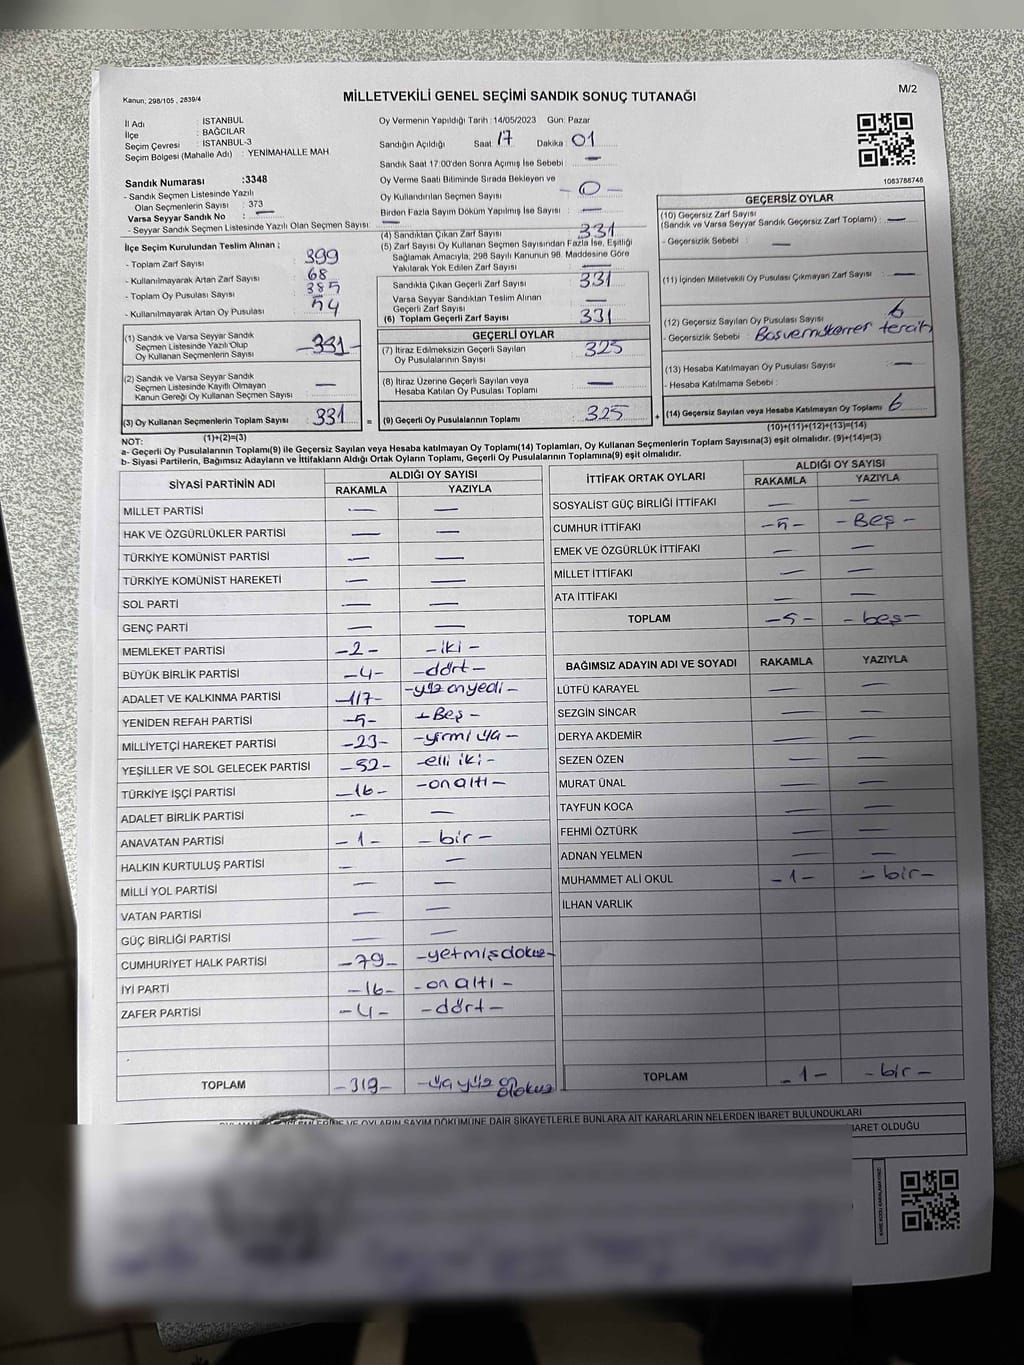 Kanun; 298/105 , 2839/4
MİLLETVEKİLİ GENEL SEÇİMİ SANDIK SONUÇ TUTANAĞI
M/2
İl Adı : İSTANBUL
İlçe : BAĞCILAR
Seçim Çevresi : İSTANBUL-3
Seçim Bölgesi (Mahalle Adı) : YENİMAHALLE MAH.
Oy Vermenin Yapıldığı Tarih : 14/05/2023 Gün: Pazar
Sandığın Açıldığı Saat 17 Dakika 01
Sandık Saat 17:00'den Sonra Açılmış İse Sebebi : —
Oy Verme Saati Bitiminde Sırada Bekleyen ve
Oy Kullandırılan Seçmen Sayısı - 0 -
Birden Fazla Sayım Döküm Yapılmış İse Sayısı : —
1063788748
Sandık Numarası :3348
- Sandık Seçmen Listesinde Yazılı
Olan Seçmenlerin Sayısı : 373
Varsa Seyyar Sandık No : —
- Seyyar Sandık Seçmen Listesinde Yazılı Olan Seçmen Sayısı: —
İlçe Seçim Kurulundan Teslim Alınan ;
- Toplam Zarf Sayısı : 399
- Kullanılmayarak Artan Zarf Sayısı : 68
- Toplam Oy Pusulası Sayısı : 385
- Kullanılmayarak Artan Oy Pusulası : 54
(1) Sandık ve Varsa Seyyar Sandık
Seçmen Listesinde Yazılı Olup
Oy Kullanan Seçmenlerin Sayısı -331-
(2) Sandık ve Varsa Seyyar Sandık
Seçmen Listesinde Kayıtlı Olmayan
Kanun Gereği Oy Kullanan Seçmen Sayısı : —
(3) Oy Kullanan Seçmenlerin Toplam Sayısı : 331 =
(1)+(2)=(3)
(4) Sandıktan Çıkan Zarf Sayısı : 331
(5) Zarf Sayısı Oy Kullanan Seçmen Sayısından Fazla İse, Eşitliği
Sağlamak Amacıyla, 298 Sayılı Kanunun 98. Maddesine Göre
Yakılarak Yok Edilen Zarf Sayısı : —
Sandıkta Çıkan Geçerli Zarf Sayısı : 331
Varsa Seyyar Sandıktan Teslim Alınan
Geçerli Zarf Sayısı : —
(6) Toplam Geçerli Zarf Sayısı : 331
GEÇERLİ OYLAR
(7) İtiraz Edilmeksizin Geçerli Sayılan
Oy Pusulalarının Sayısı : 325
(8) İtiraz Üzerine Geçerli Sayılan veya
Hesaba Katılan Oy Pusulaları Toplamı : —
(9) Geçerli Oy Pusulalarının Toplamı : 325 +
GEÇERSİZ OYLAR
(10) Geçersiz Zarf Sayısı
(Sandık ve Varsa Seyyar Sandık Geçersiz Zarf Toplamı) : —
- Geçersizlik Sebebi : —
(11) İçinden Milletvekili Oy Pusulası Çıkmayan Zarf Sayısı : —
(12) Geçersiz Sayılan Oy Pusulası Sayısı : 6
- Geçersizlik Sebebi :
(13) Hesaba Katılmayan Oy Pusulası Sayısı : —
- Hesaba Katılmama Sebebi :
(14) Geçersiz Sayılan veya Hesaba Katılmayan Oy Toplamı : 6
(10)+(11)+(12)+(13)=(14)
NOT:
a- Geçerli Oy Pusulalarının Toplamı(9) ile Geçersiz Sayılan veya Hesaba katılmayan Oy Toplamı(14) Toplamları, Oy Kullanan Seçmenlerin Toplam Sayısına(3) eşit olmalıdır. (9)+(14)=(3)
b- Siyasi Partilerin, Bağımsız Adayların ve İttifakların Aldığı Ortak Oyların Toplamı, Geçerli Oy Pusulalarının Toplamına(9) eşit olmalıdır.
SİYASİ PARTİNİN ADI ALDIĞI OY SAYISI
RAKAMLA YAZIYLA
MİLLET PARTİSİ — —
HAK VE ÖZGÜRLÜKLER PARTİSİ — —
TÜRKİYE KOMÜNİST PARTİSİ — —
TÜRKİYE KOMÜNİST HAREKETİ — —
SOL PARTİ — —
GENÇ PARTİ — —
MEMLEKET PARTİSİ -2- -iki-
BÜYÜK BİRLİK PARTİSİ -4- -dört-
ADALET VE KALKINMA PARTİSİ -117- -yüz onyedi-
YENİDEN REFAH PARTİSİ -5- -Beş-
MİLLİYETÇİ HAREKET PARTİSİ -23- -yirmi üç-
YEŞİLLER VE SOL GELECEK PARTİSİ -52- -elli iki-
TÜRKİYE İŞÇİ PARTİSİ -16- -onaltı-
ADALET BİRLİK PARTİSİ — —
ANAVATAN PARTİSİ -1- -bir-
HALKIN KURTULUŞ PARTİSİ — —
MİLLİ YOL PARTİSİ — —
VATAN PARTİSİ — —
GÜÇ BİRLİĞİ PARTİSİ — —
CUMHURİYET HALK PARTİSİ -79- -yetmişdokuz-
İYİ PARTİ -16- -on altı-
ZAFER PARTİSİ -4- -dört-
TOPLAM -319- -üç yüz on dokuz
İTTİFAK ORTAK OYLARI ALDIĞI OY SAYISI
RAKAMLA YAZIYLA
SOSYALİST GÜÇ BİRLİĞİ İTTİFAKI — —
CUMHUR İTTİFAKI -5- -Beş-
EMEK VE ÖZGÜRLÜK İTTİFAKI — —
MİLLET İTTİFAKI — —
ATA İTTİFAKI — —
TOPLAM -5- -beş-
BAĞIMSIZ ADAYIN ADI VE SOYADI RAKAMLA YAZIYLA
LÜTFÜ KARAYEL — —
SEZGİN SİNCAR — —
DERYA AKDEMİR — —
SEZEN ÖZEN — —
MURAT ÜNAL — —
TAYFUN KOCA — —
FEHMİ ÖZTÜRK — —
ADNAN YELMEN — —
MUHAMMET ALİ OKUL -1- -bir-
İLHAN VARLIK
TOPLAM -1- -bir-
VE OYLARIN SAYIM DÖKÜMÜNE DAİR ŞİKAYETLERLE BUNLARA AİT KARARLARIN NELERDEN İBARET BULUNDUKLARI
İBARET OLDUĞU